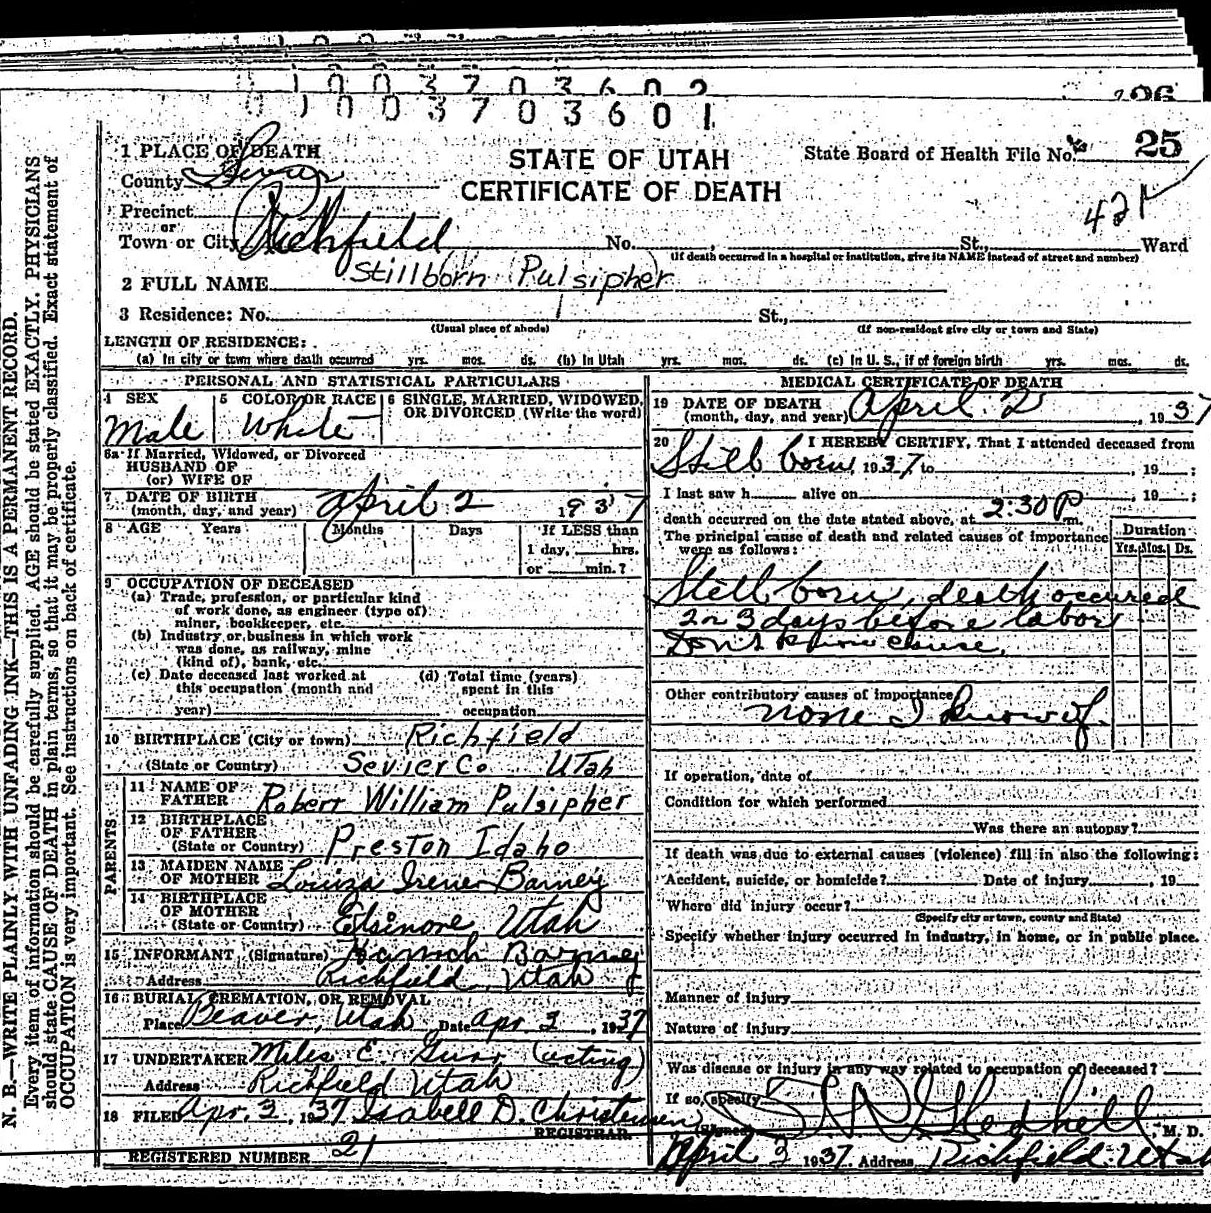 0 1 0 0 3 7 0 3 6 0 2
0 1 0 0 3 7 0 3 6 0 1
26
1 PLACE OF DEATH
STATE OF UTAH
CERTIFICATE OF DEATH
State Board of Health File No. 25
County Sevier
421
Precinct
or
Town or City Richfield No. , St., Ward
(If death occurred in a hospital or institution, give its NAME instead of street and number)
2 FULL NAME Stillborn Pulsipher
3 Residence: No. St.,
(Usual place of abode) (If non-resident give city or town and State)
LENGTH OF RESIDENCE:
(a) In city or town where death occurred yrs. mos. ds. (b) In Utah yrs. mos. ds. (c) In U. S., if of foreign birth yrs. mos. ds.
PERSONAL AND STATISTICAL PARTICULARS
4 SEX 5 COLOR OR RACE 6 SINGLE, MARRIED, WIDOWED,
OR DIVORCED (Write the word)
Male White
6a If Married, Widowed, or Divorced
HUSBAND OF
(or) WIFE OF
7 DATE OF BIRTH
(month, day, and year) April 2 1937
8 AGE Years Months Days If LESS than
1 day, hrs.
or min.?
9 OCCUPATION OF DECEASED
(a) Trade, profession, or particular kind
of work done, as engineer (type of)
miner, bookkeeper, etc.
(b) Industry or business in which work
was done, as railway, mine
(kind of), bank, etc.
(c) Date deceased last worked at (d) Total time (years)
this occupation (month and spent in this
year) occupation
10 BIRTHPLACE (City or town) Richfield
(State or Country) Sevier Co Utah
PARENTS
11 NAME OF
FATHER Robert William Pulsipher
12 BIRTHPLACE
OF FATHER
(State or Country) Preston Idaho
13 MAIDEN NAME
OF MOTHER Louiza Irene Barney
14 BIRTHPLACE
OF MOTHER
(State or Country) Elsinore Utah
15 INFORMANT (Signature) Barney
Address Richfield, Utah
16 BURIAL, CREMATION, OR REMOVAL
Place Beaver, Utah Date Apr 3, 1937
17 UNDERTAKER Miles E. (acting)
Address Richfield Utah
18 FILED Apr. 3, 1937 Isabell D. Christensen
REGISTRAR.
REGISTERED NUMBER 21
MEDICAL CERTIFICATE OF DEATH
19 DATE OF DEATH
(month, day, and year) April 2, 1937
20 I HEREBY CERTIFY, That I attended deceased from
Still born 1937 to , 19 ;
I last saw h alive on , 19 ;
death occurred on the date stated above, at 2:30 P m.
The principal cause of death and related causes of importance
were as follows:
Duration
Yrs. Mos. Ds.
Still born, death occured
2 or 3 days before labor
Don't know cause.
Other contributory causes of importance
None I know of.
If operation, date of
Condition for which performed
Was there an autopsy?
If death was due to external causes (violence) fill in also the following:
Accident, suicide, or homicide? Date of injury , 19
Where did injury occur?
(Specify city or town, county and State)
Specify whether injury occurred in industry, in home, or in public place.
Manner of injury
Nature of injury
Was disease or injury in any way related to occupation of deceased?
If so, specify
(Signed) Gledhill, M. D.
April 3 1937. Address Richfield Utah
N. B.—WRITE PLAINLY WITH UNFADING INK—THIS IS A PERMANENT RECORD.
Every item of information should be carefully supplied. AGE should be stated EXACTLY. PHYSICIANS
should state CAUSE OF DEATH in plain terms, so that it may be properly classified. Exact statement of
OCCUPATION is very important. See instructions on back of certificate.